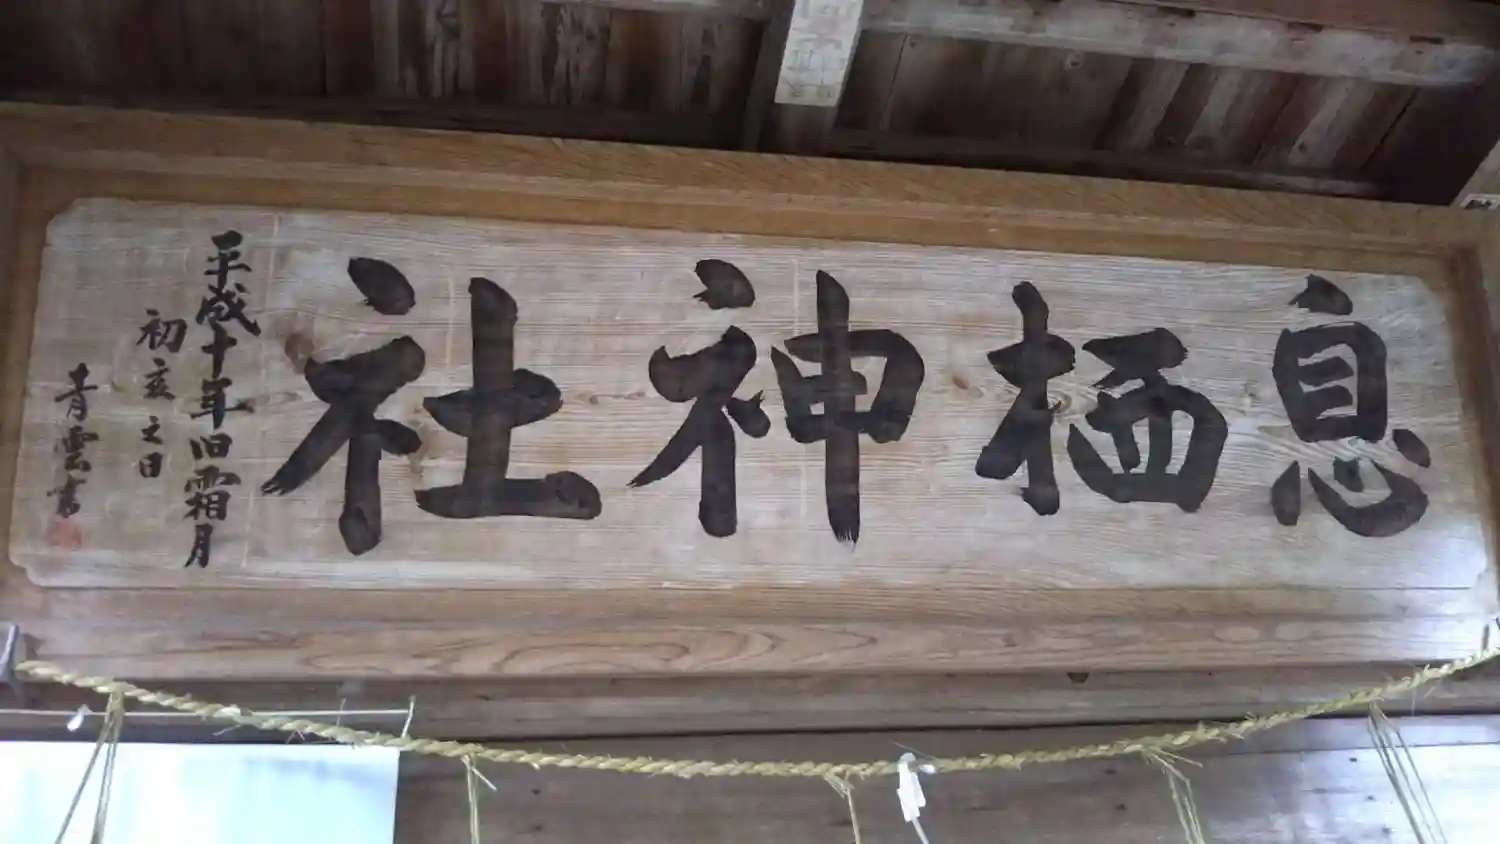 息栖神社
平成十年旧霜月
初亥之日
青雲書